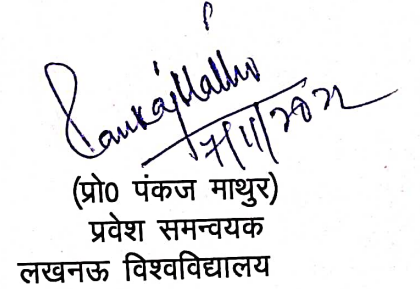 Pankaj Mathur
17/11/2022
(प्रो0 पंकज माथुर)
प्रवेश समन्वयक
लखनऊ विश्वविद्यालय